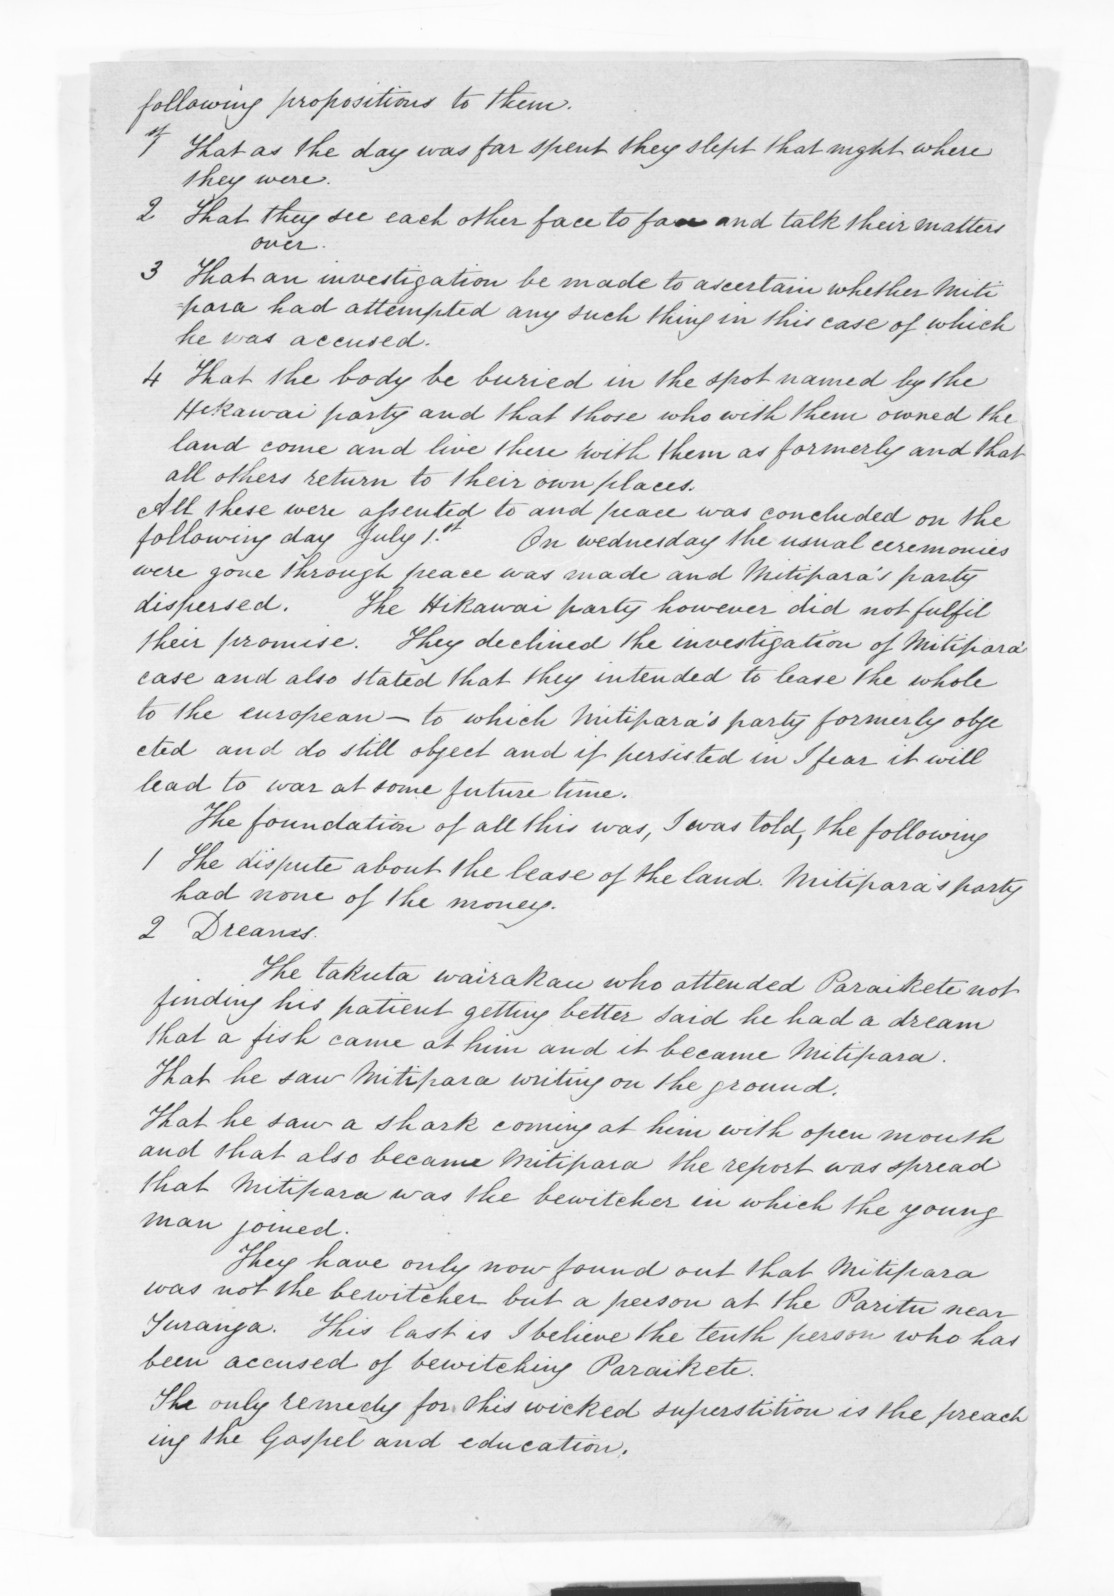 following propositions to them.
1st That as the day was far spent they slept that night where
they were.
2 That they see each other face to face and talk their matters
over.
3 That an investigation be made to ascertain whether Miti
=para had attempted any such thing in this case of which
he was accused.
4 That the body be buried in the spot named by the
Hikawai party and that those who with them owned the
land come and live there with them as formerly and that
all others return to their own places.
All these were assented to and peace was concluded on the
following day July 1.st On wednesday the usual ceremonies
were gone through peace was made and Mitipara's party
dispersed. The Hikawai party however did not fulfil
their promise. They declined the investigation of Mitipara's
case and also stated that they intended to lease the whole
to the european — to which Mitipara's party formerly obje
cted and do still object and if persisted in I fear it will
lead to war at some future time.
The foundation of all this was, I was told, the following
1 The dispute about the lease of the land. Mitipara's party
had none of the money.
2 Dreams.
The takuta wairakau who attended Paraikete not
finding his patient getting better said he had a dream
that a fish came at him and it became Mitipara.
That he saw Mitipara writing on the ground.
That he saw a shark coming at him with open mouth
and that also became Mitipara the report was spread
that Mitipara was the bewitcher in which the young
man joined.
They have only now found out that Mitipara
was not the bewitcher but a person at the Paritu near
Turanga. This last is I believe the tenth person who has
been accused of bewitching Paraikete.
The only remedy for this wicked superstition is the preach
ing the Gospel and education.